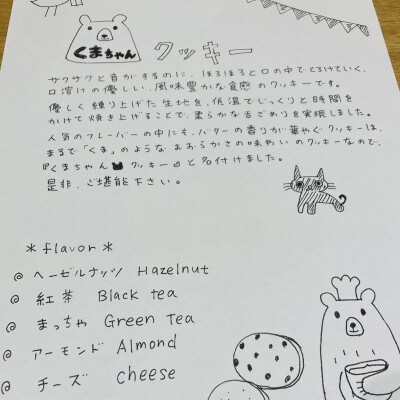 くまちゃん クッキー
サクサクと音がするのに、ほろほろと口の中でとろけていく、
口溶けの優しい、風味豊かな食感のクッキーです。
優しく練り上げた生地を、低温でじっくりと時間を
かけて焼き上げることで、柔らかな舌ざわりを実現しました。
人気のフレーバーの中にも、バターの香りが華やぐクッキーは、
まるで「くま」のようなおおらかさの味わいのクッキーなので、
『くまちゃんクッキー』と名付けました。
是非、ご堪能下さい。
*flavor*
@ ヘーゼルナッツ Hazelnut
@ 紅茶 Black tea
@ まっちゃ Green Tea
@ アーモンド Almond
@ チーズ cheese